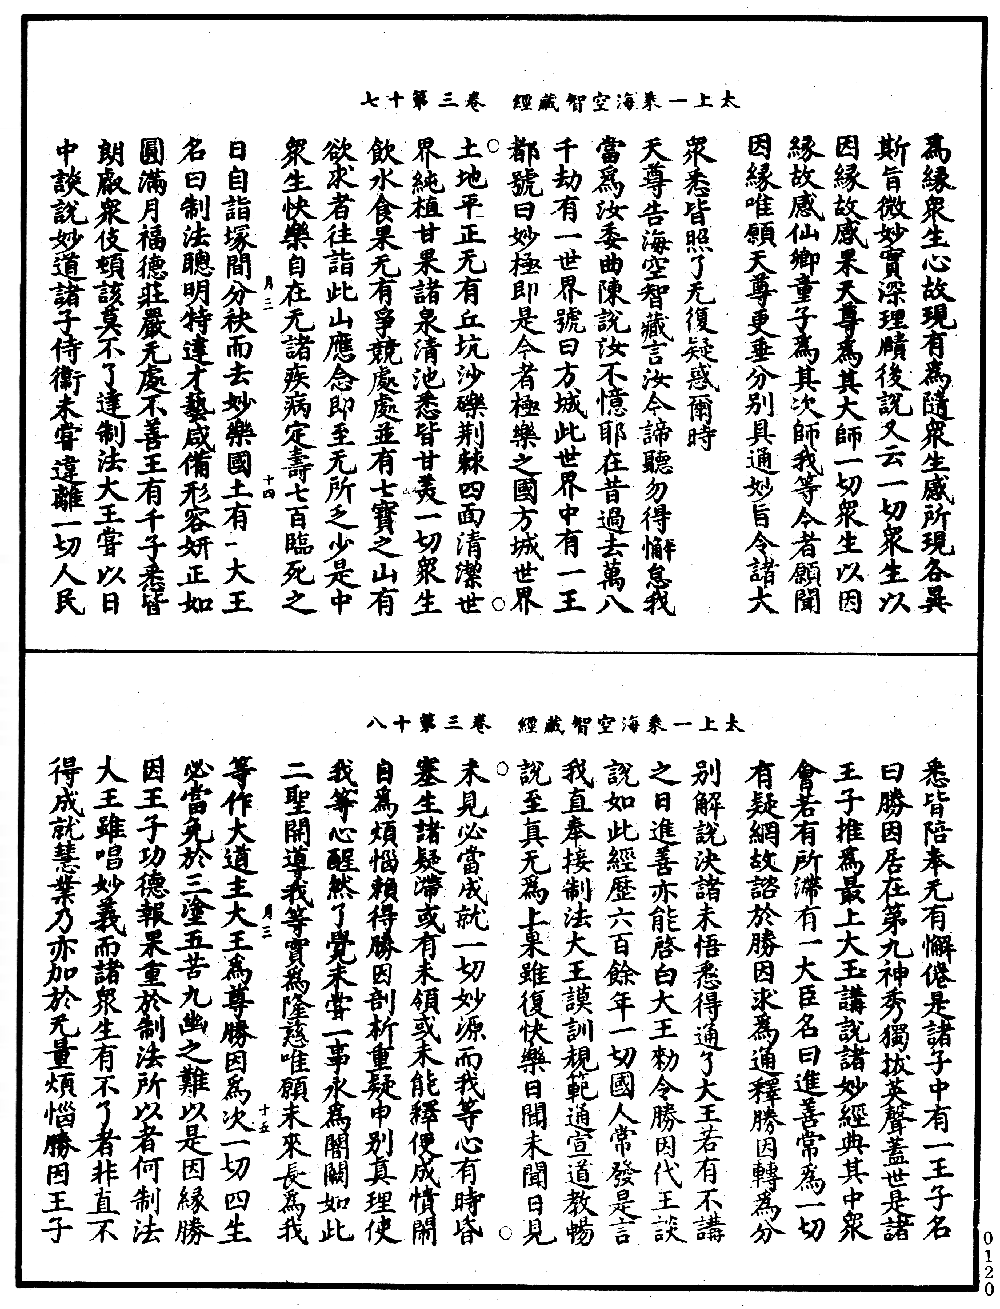 太上一乘海空智藏經　卷三第十七
爲緣衆生心故現有爲隨衆生感所現各異
斯旨微妙實深理賾後說又云一切衆生以
因緣故感果天尊爲其大師一切衆生以因
緣故感仙鄉童子爲其次師我等今者願聞
因緣唯願天尊更垂分別具通妙旨令諸大
衆悉皆照了无復疑惑爾時
天尊告海空智藏言汝今諦聽勿得懈怠我
當爲汝委曲陳說汝不憶耶在昔過去萬八
千劫有一世界號曰方城此世界中有一王
都號曰妙極即是今者極樂之國方城世界
土地平正无有丘坑沙礫荆棘四面清潔世
界純植甘果諸泉清池悉皆甘美一切衆生
飲水食果无有爭競處處並有七寶之山有
欲求者往詣此山應念即至无所乏少是中
衆生快樂自在无諸疾病定壽七百臨死之
月三　十四
日自詣塚間分袂而去妙樂國土有一大王
名曰制法聰明特達才藝咸備形容妍正如
圓滿月福德莊嚴无處不善王有千子悉皆
朗叡衆伎頓該莫不了達制法大王嘗以日
中談說妙道諸子侍衛未嘗違離一切人民
太上一乘海空智藏經　卷三第十八
悉皆陪奉无有懈倦是諸子中有一王子名
曰勝因居在第九神秀獨拔英聲蓋世是諸
王子推爲最上大王講說諸妙經典其中衆
會若有所滯有一大臣名曰進善常爲一切
有疑網故諮於勝因求爲通釋勝因轉爲分
別解說決諸未悟悉得通了大王若有不講
之日進善亦能啓白大王勑令勝因代王談
說如此經歷六百餘年一切國人常發是言
我直奉接制法大王謨訓規範通宣道教暢
說至真无爲上果雖復快樂日聞未聞日見
未見必當成就一切妙源而我等心有時昏
塞生諸疑滯或有未領或未能釋便成憒鬧
自爲煩惱賴得勝因剖析重疑申別真理使
我等心醒然了覺未嘗一事永爲闇闕如此
二聖開導我等實爲隆慈唯願未來長爲我
月三　十五
等作大道主大王爲尊勝因爲次一切四生
必當免於三塗五苦九幽之難以是因緣勝
因王子功德報果重於制法所以者何制法
大王雖唱妙義而諸衆生有不了者非直不
得成就慧業乃亦加於无量煩惱勝因王子
0120